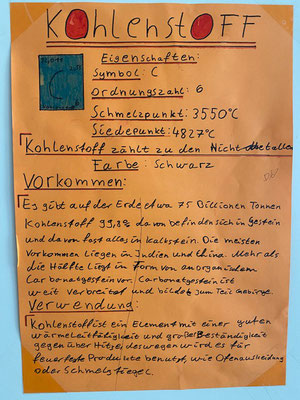 KOhlenstOFF
Eigenschaften:
Symbol: C
Ordnungszahl: 6
Schmelzpunkt: 3550°C
Siedepunkt: 4827°C
Kohlenstoff zählt zu den Nichtmetallen
Farbe: Schwarz
Vorkommen:
Es gibt auf der Erde etwa 75 Billionen Tonnen
Kohlenstoff 99,8% davon befinden sich in Gestein
und davon fast alles in Kalkstein. Die meisten
Vorkommen liegen in Indien und China. Mehr als
die Hälfte liegt in form von anorganischem
Carbonatgestein vor. Carbonatgestein ist
weit verbreitet und bildet zum Teil Gebirge.
Verwendung:
Kohlenstoff ist ein Element mit einer guten
wärmeleitfähigkeit und großer Beständigkeit
gegenüber Hitze, deswegen wird es für
feuerfeste Produkte benutzt, wie Ofenauskleidung
oder Schmelztiegel.